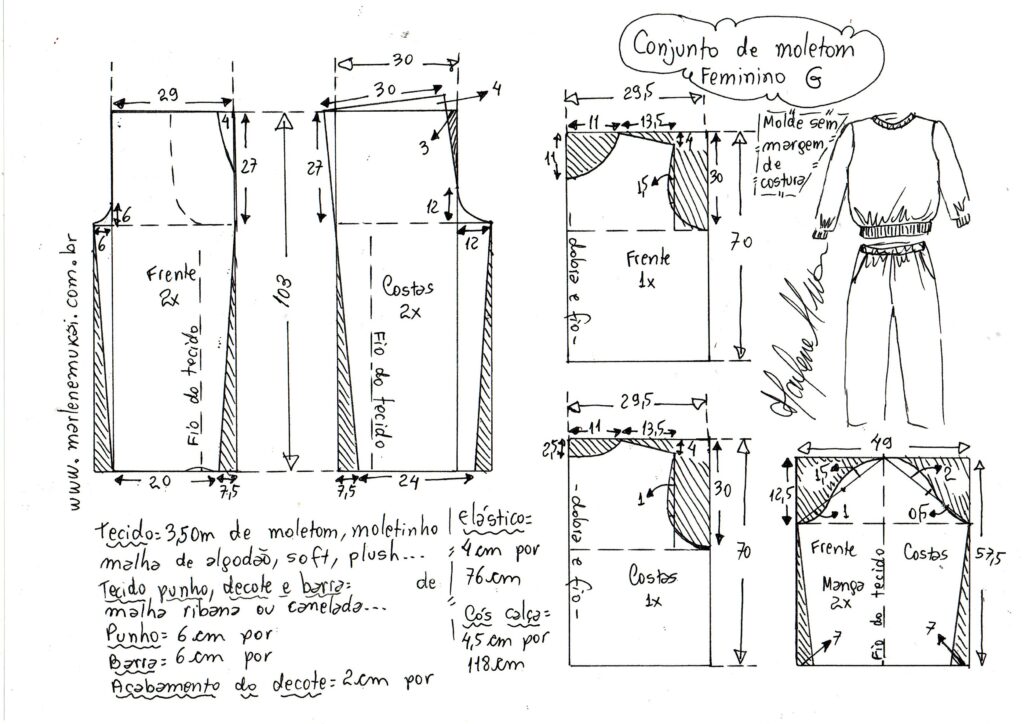 Conjunto de moletom
Feminino G
30
29
30
4
4
3
27
27
103
6
6
12
12
Frente
2x
Fio do tecido
Costas
2x
Fio do tecido
20
7,5
7,5
24
www.marlenemukai.com.br
29,5
11
13,5
11
4
1,5
30
70
Frente
1x
-dobra e fio-
Molde sem
margem
de
costura
Marlene Mukai
29,5
11
13,5
2,5
4
1
30
70
Costas
1x
-dobra e fio-
49
12,5
1,5
2
1
0,5
57,5
Frente
Costas
Manga
2x
Fio do tecido
7
7
Tecido= 3,50m de moletom, moletinho
malha de algodão, soft, plush...
Tecido punho, decote e barra= de
malha ribana ou canelada...
Punho= 6 cm por
Barra= 6 cm por
Acabamento do decote= 2 cm por
Elástico=
4 cm por
76 cm
Cós calça=
4,5 cm por
118 cm